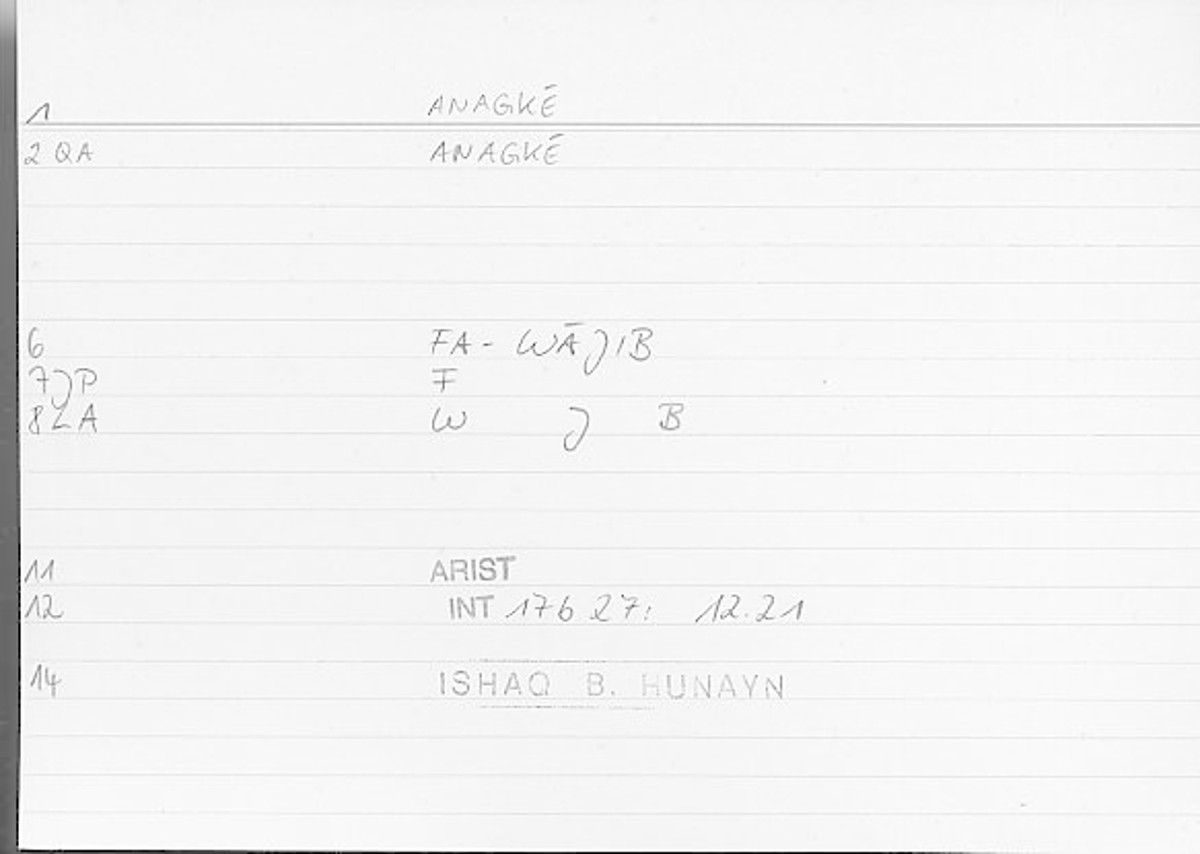 1 ANAGKĒ
2 QA ANAGKĒ
6 FA- WĀJIB
7JP F
8LA W J B
11 ARIST
12 INT 17b 27: 12.21
14 ISHAQ B. HUNAYN